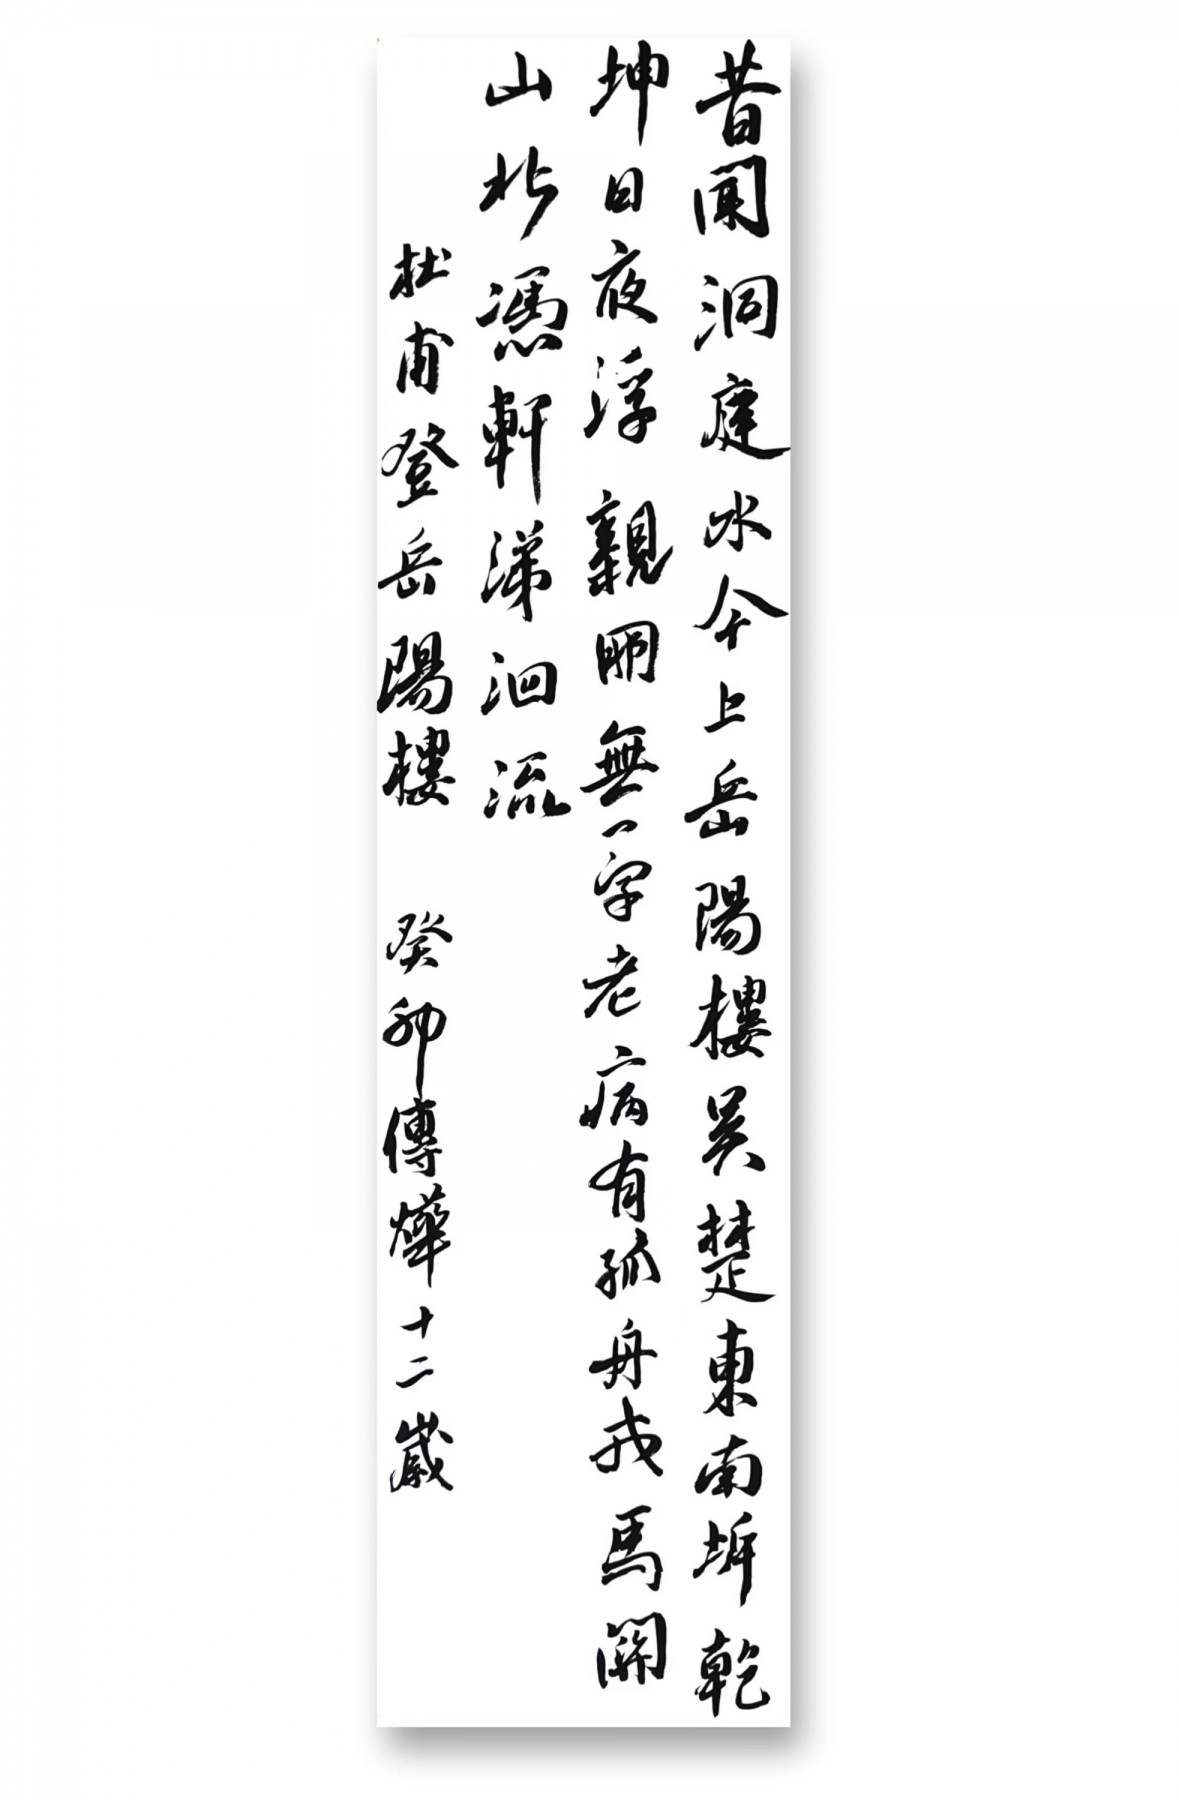 昔聞洞庭水今上岳陽樓吳楚東南坼乾
坤日夜浮親朋無一字老病有孤舟戎馬關
山北憑軒涕泗流
杜甫登岳陽樓 癸卯傅燁十二歲